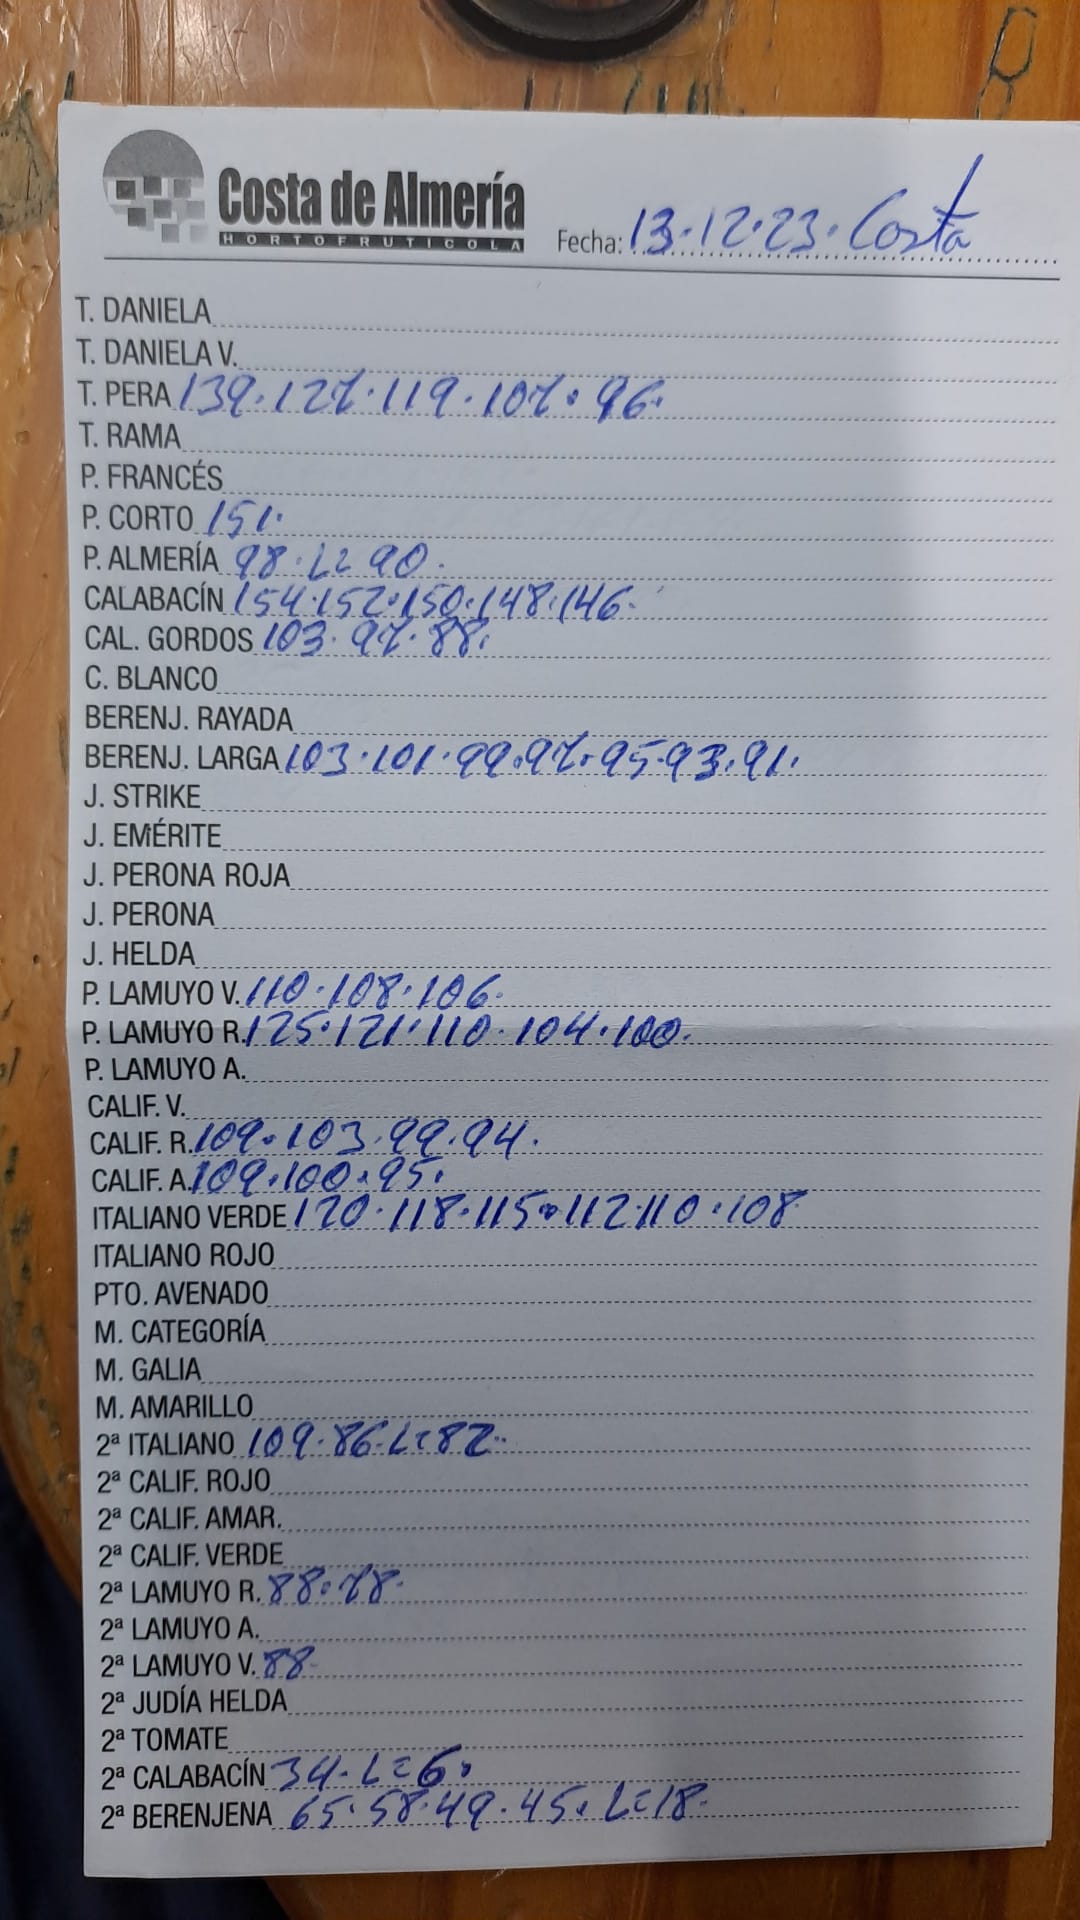 Costa de Almería
HORTOFRUTICOLA
Fecha: 13.12.23. Costa
T. DANIELA
T. DANIELA V.
T. PERA 139.127.119.107.96.
T. RAMA
P. FRANCÉS
P. CORTO 151.
P. ALMERÍA 98.L=90.
CALABACÍN 154.152.150.148.146.
CAL. GORDOS 103.97.88.
C. BLANCO
BERENJ. RAYADA
BERENJ. LARGA 103.101.99.97.95.93.91.
J. STRIKE
J. EMÉRITE
J. PERONA ROJA
J. PERONA
J. HELDA
P. LAMUYO V. 110.108.106.
P. LAMUYO R. 125.121.110.104.100.
P. LAMUYO A.
CALIF. V.
CALIF. R. 109.103.99.94.
CALIF. A. 109.100.95.
ITALIANO VERDE 120.118.115.112.110.108
ITALIANO ROJO
PTO. AVENADO
M. CATEGORÍA
M. GALIA
M. AMARILLO
2ª ITALIANO 109.86.L=82.
2ª CALIF. ROJO
2ª CALIF. AMAR.
2ª CALIF. VERDE
2ª LAMUYO R. 88.78.
2ª LAMUYO A.
2ª LAMUYO V. 88.
2ª JUDÍA HELDA
2ª TOMATE
2ª CALABACÍN 34.L=6.
2ª BERENJENA 65.58.49.45.L=18.